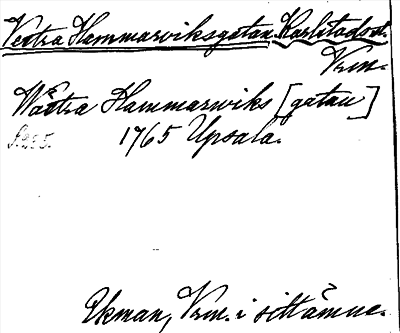 Vestra Hammarviksgatan Karlstads st.
Vrm.
Wästra Hammarwiks [gatan]
S. 255. 1765 Upsala.
Ekman, Vrm. i sitt ämne.